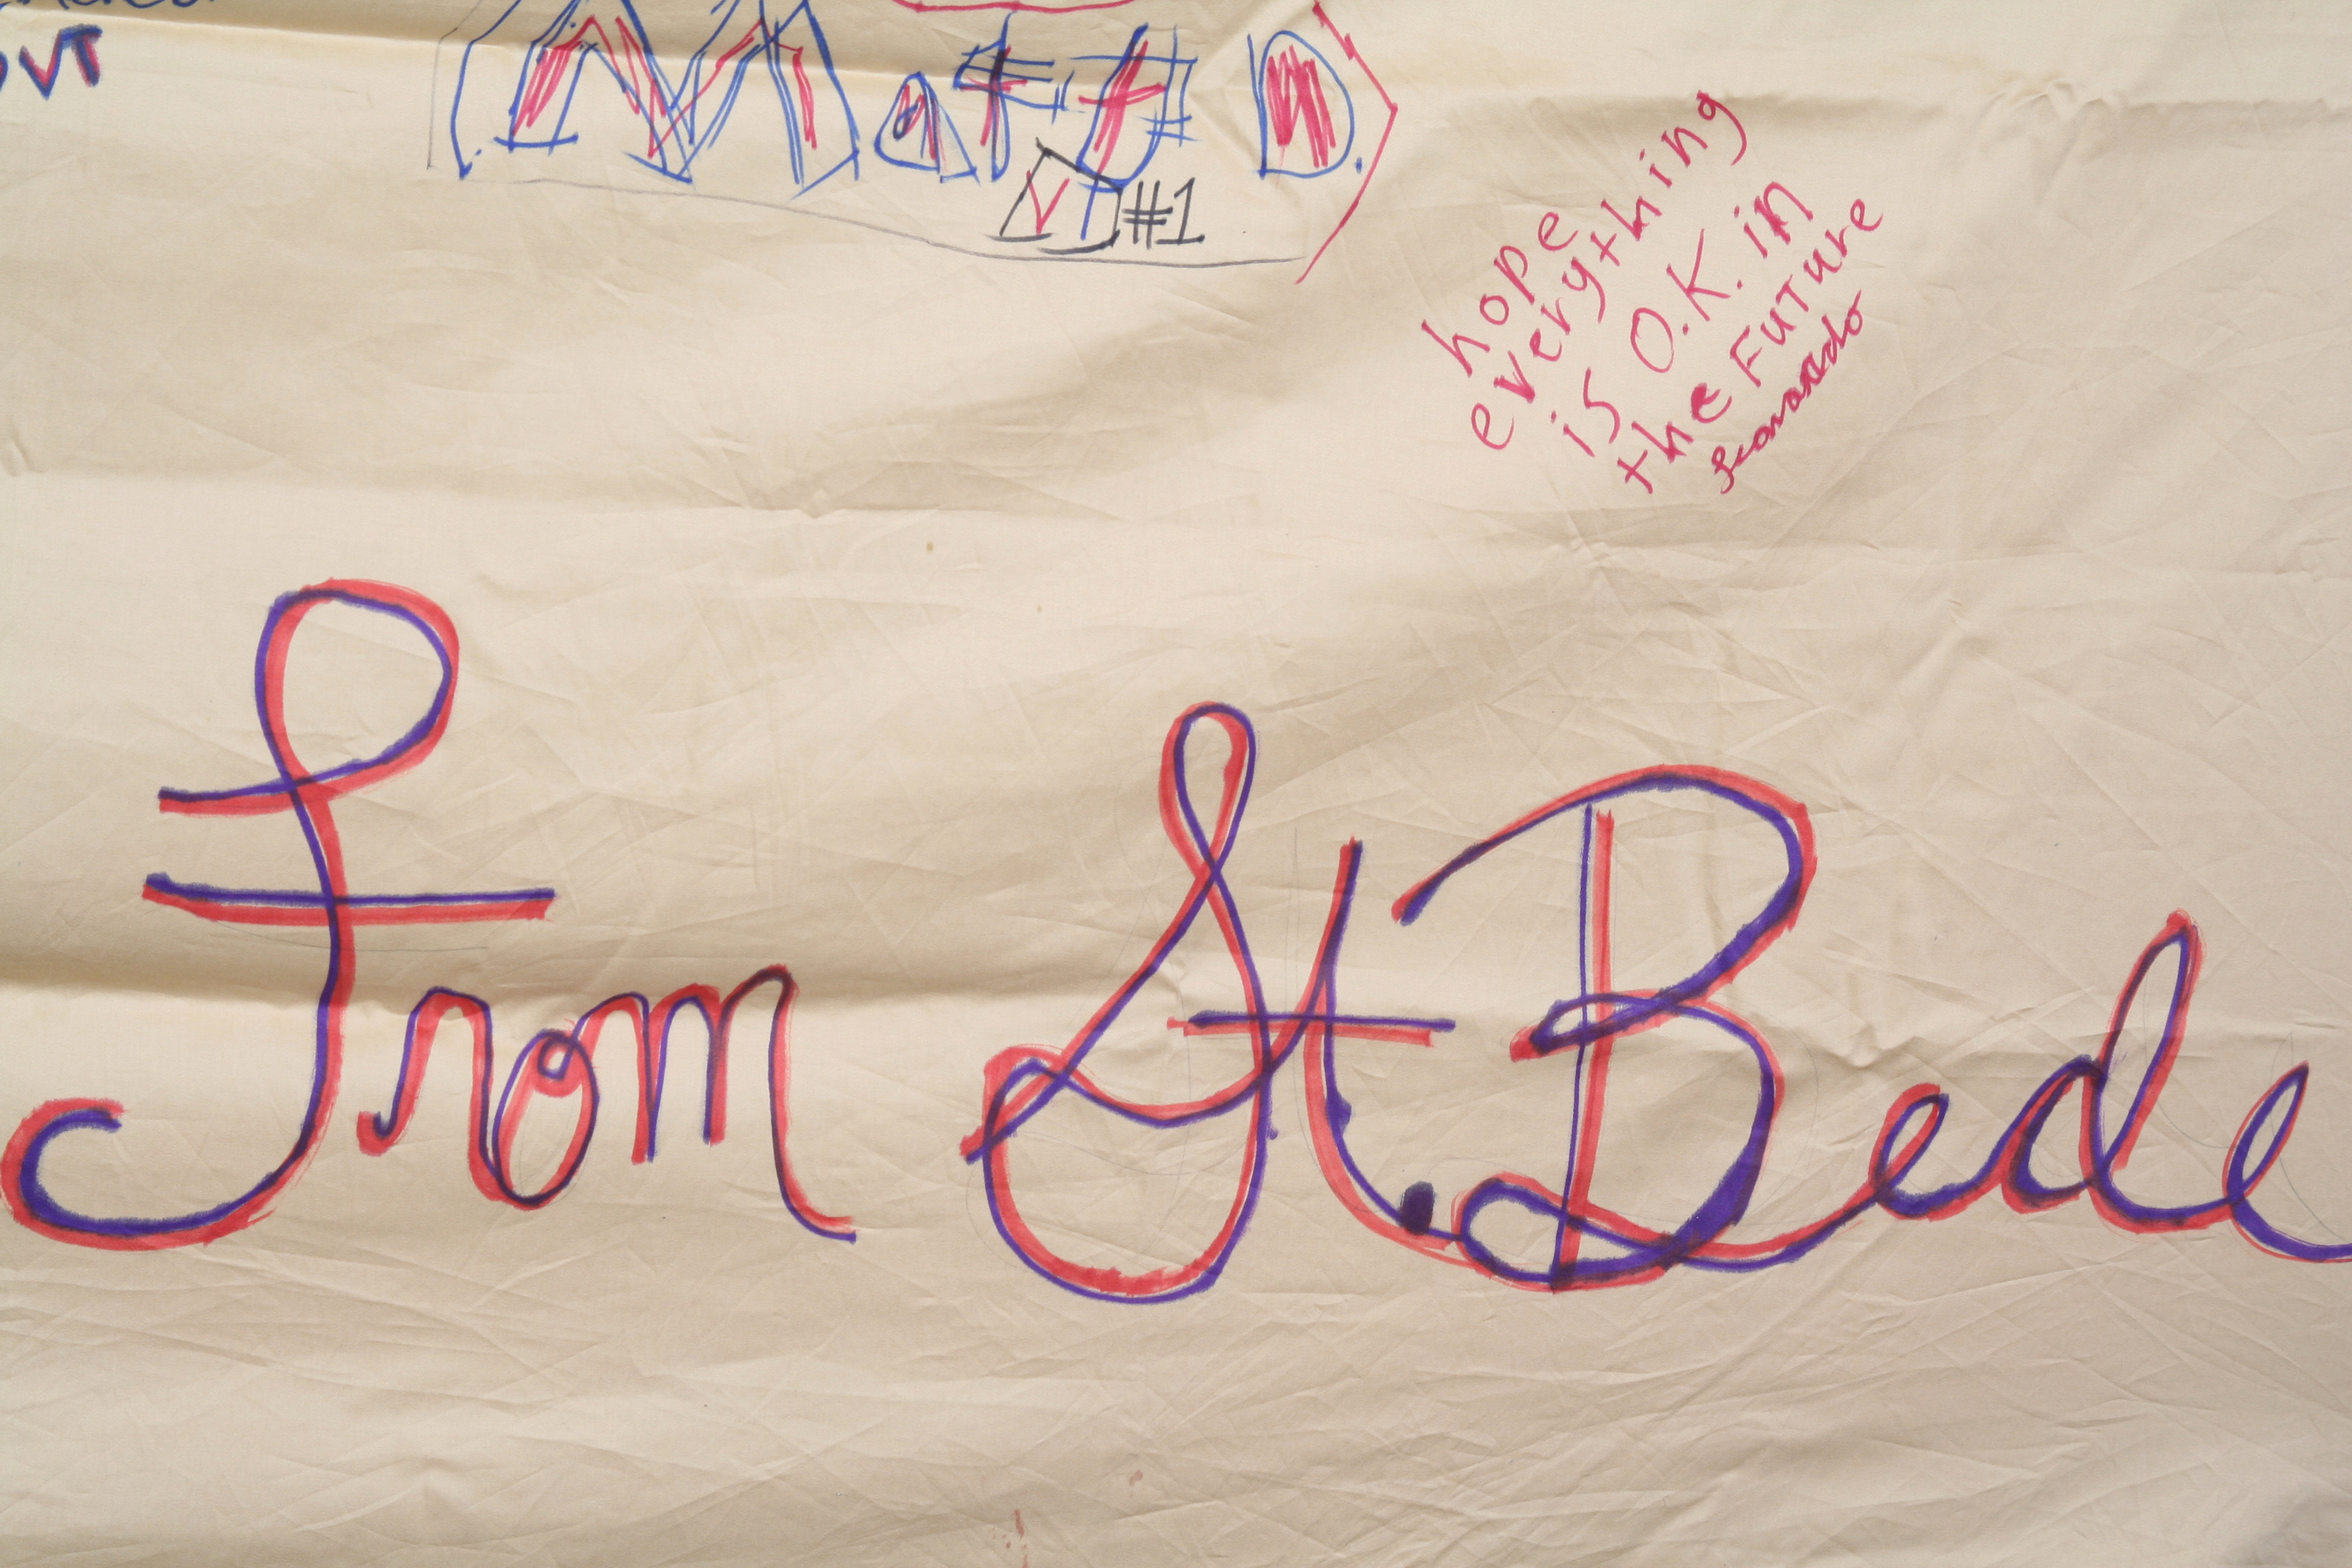 VT
Matt D.
VT #1
hope
everything
is O.K. in
the Future
Leonardo
From St. Bede